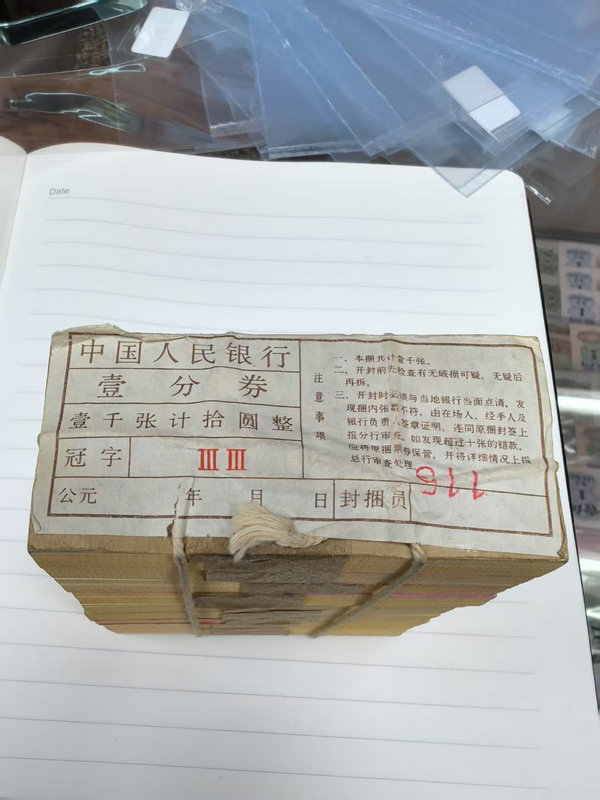 Date
中国人民银行
壹分券
壹千张计拾圆整
冠字 III III
公元 年 月 日 封捆员
注意事项
一、本捆共计壹千张。
二、开封前先检查有无破损可疑，无疑后
再拆。
三、开封时必须与当地银行当面点清，发
现捆内张数不符，由在场人、经手人及
银行负责人签章证明，连同原捆封签上
报分行审查，如发现超过十张的错款，
应将原捆票券保管，并将详细情况上报
总行审查处理。
115